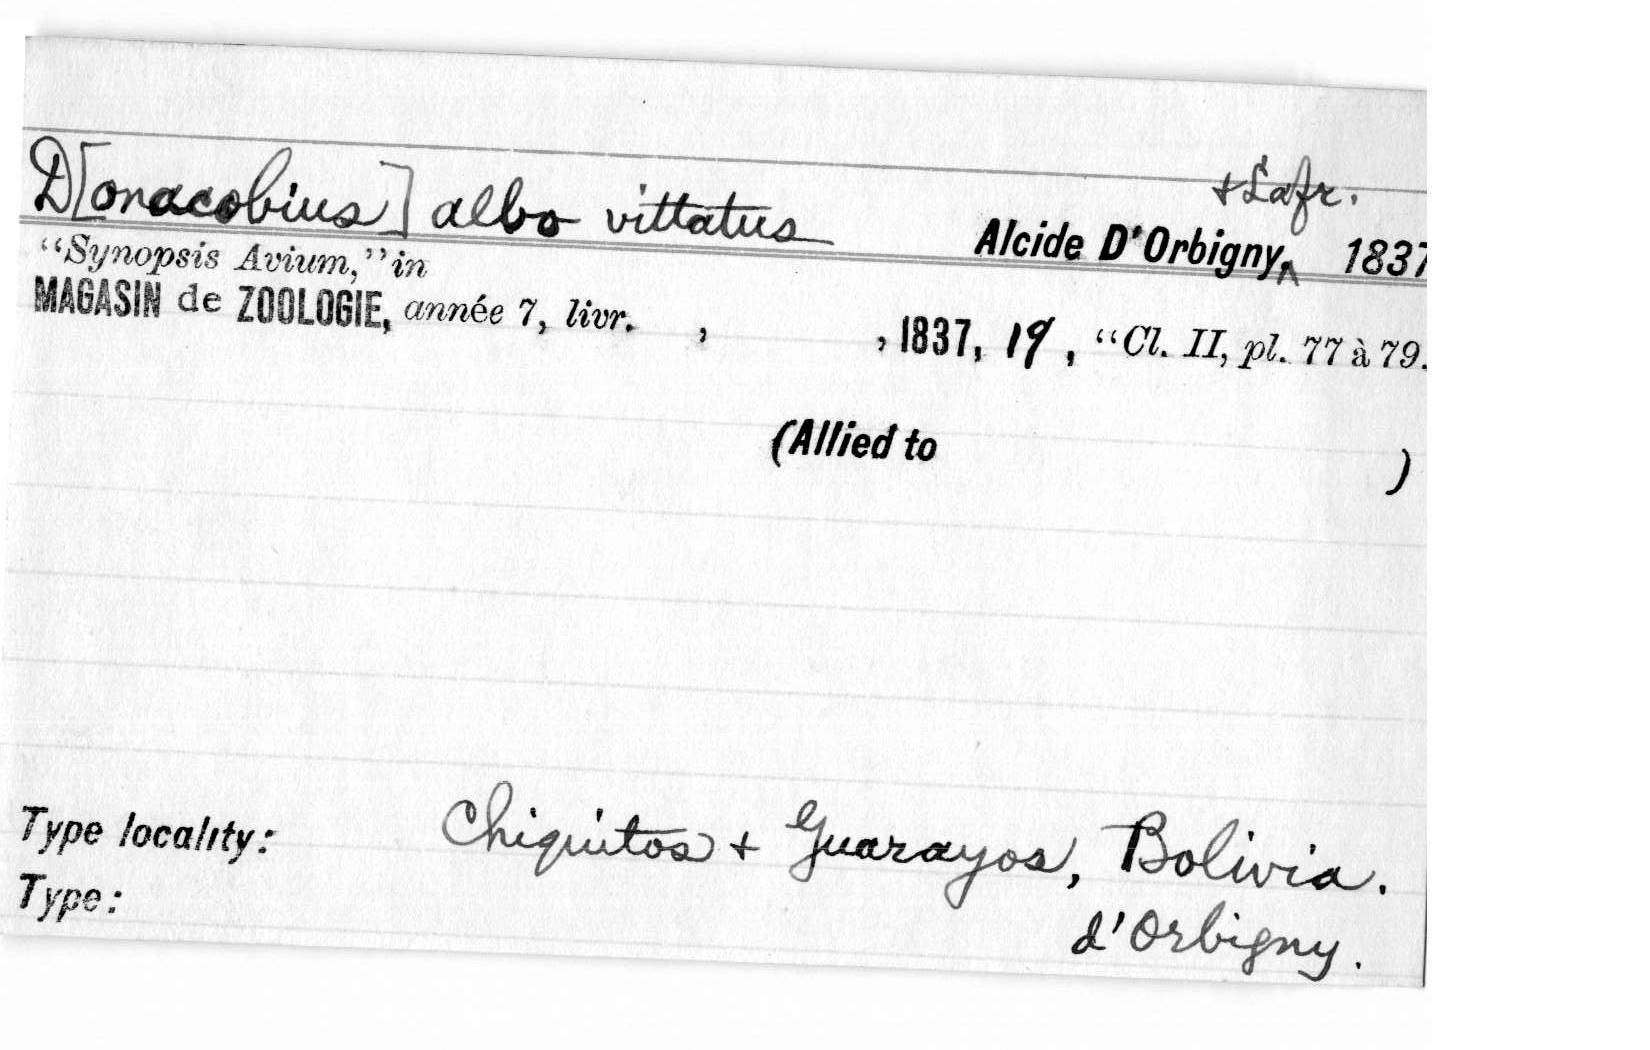 D[onacobius] albo vittatus
+ Lafr.
Alcide D'Orbigny,^ 1837
“Synopsis Avium,” in
MAGASIN de ZOOLOGIE, année 7, livr. , , 1837, 19, “Cl. II, pl. 77 à 79.
(Allied to )
Type locality: Chiquitos + Guarayos, Bolivia.
Type: d'Orbigny.